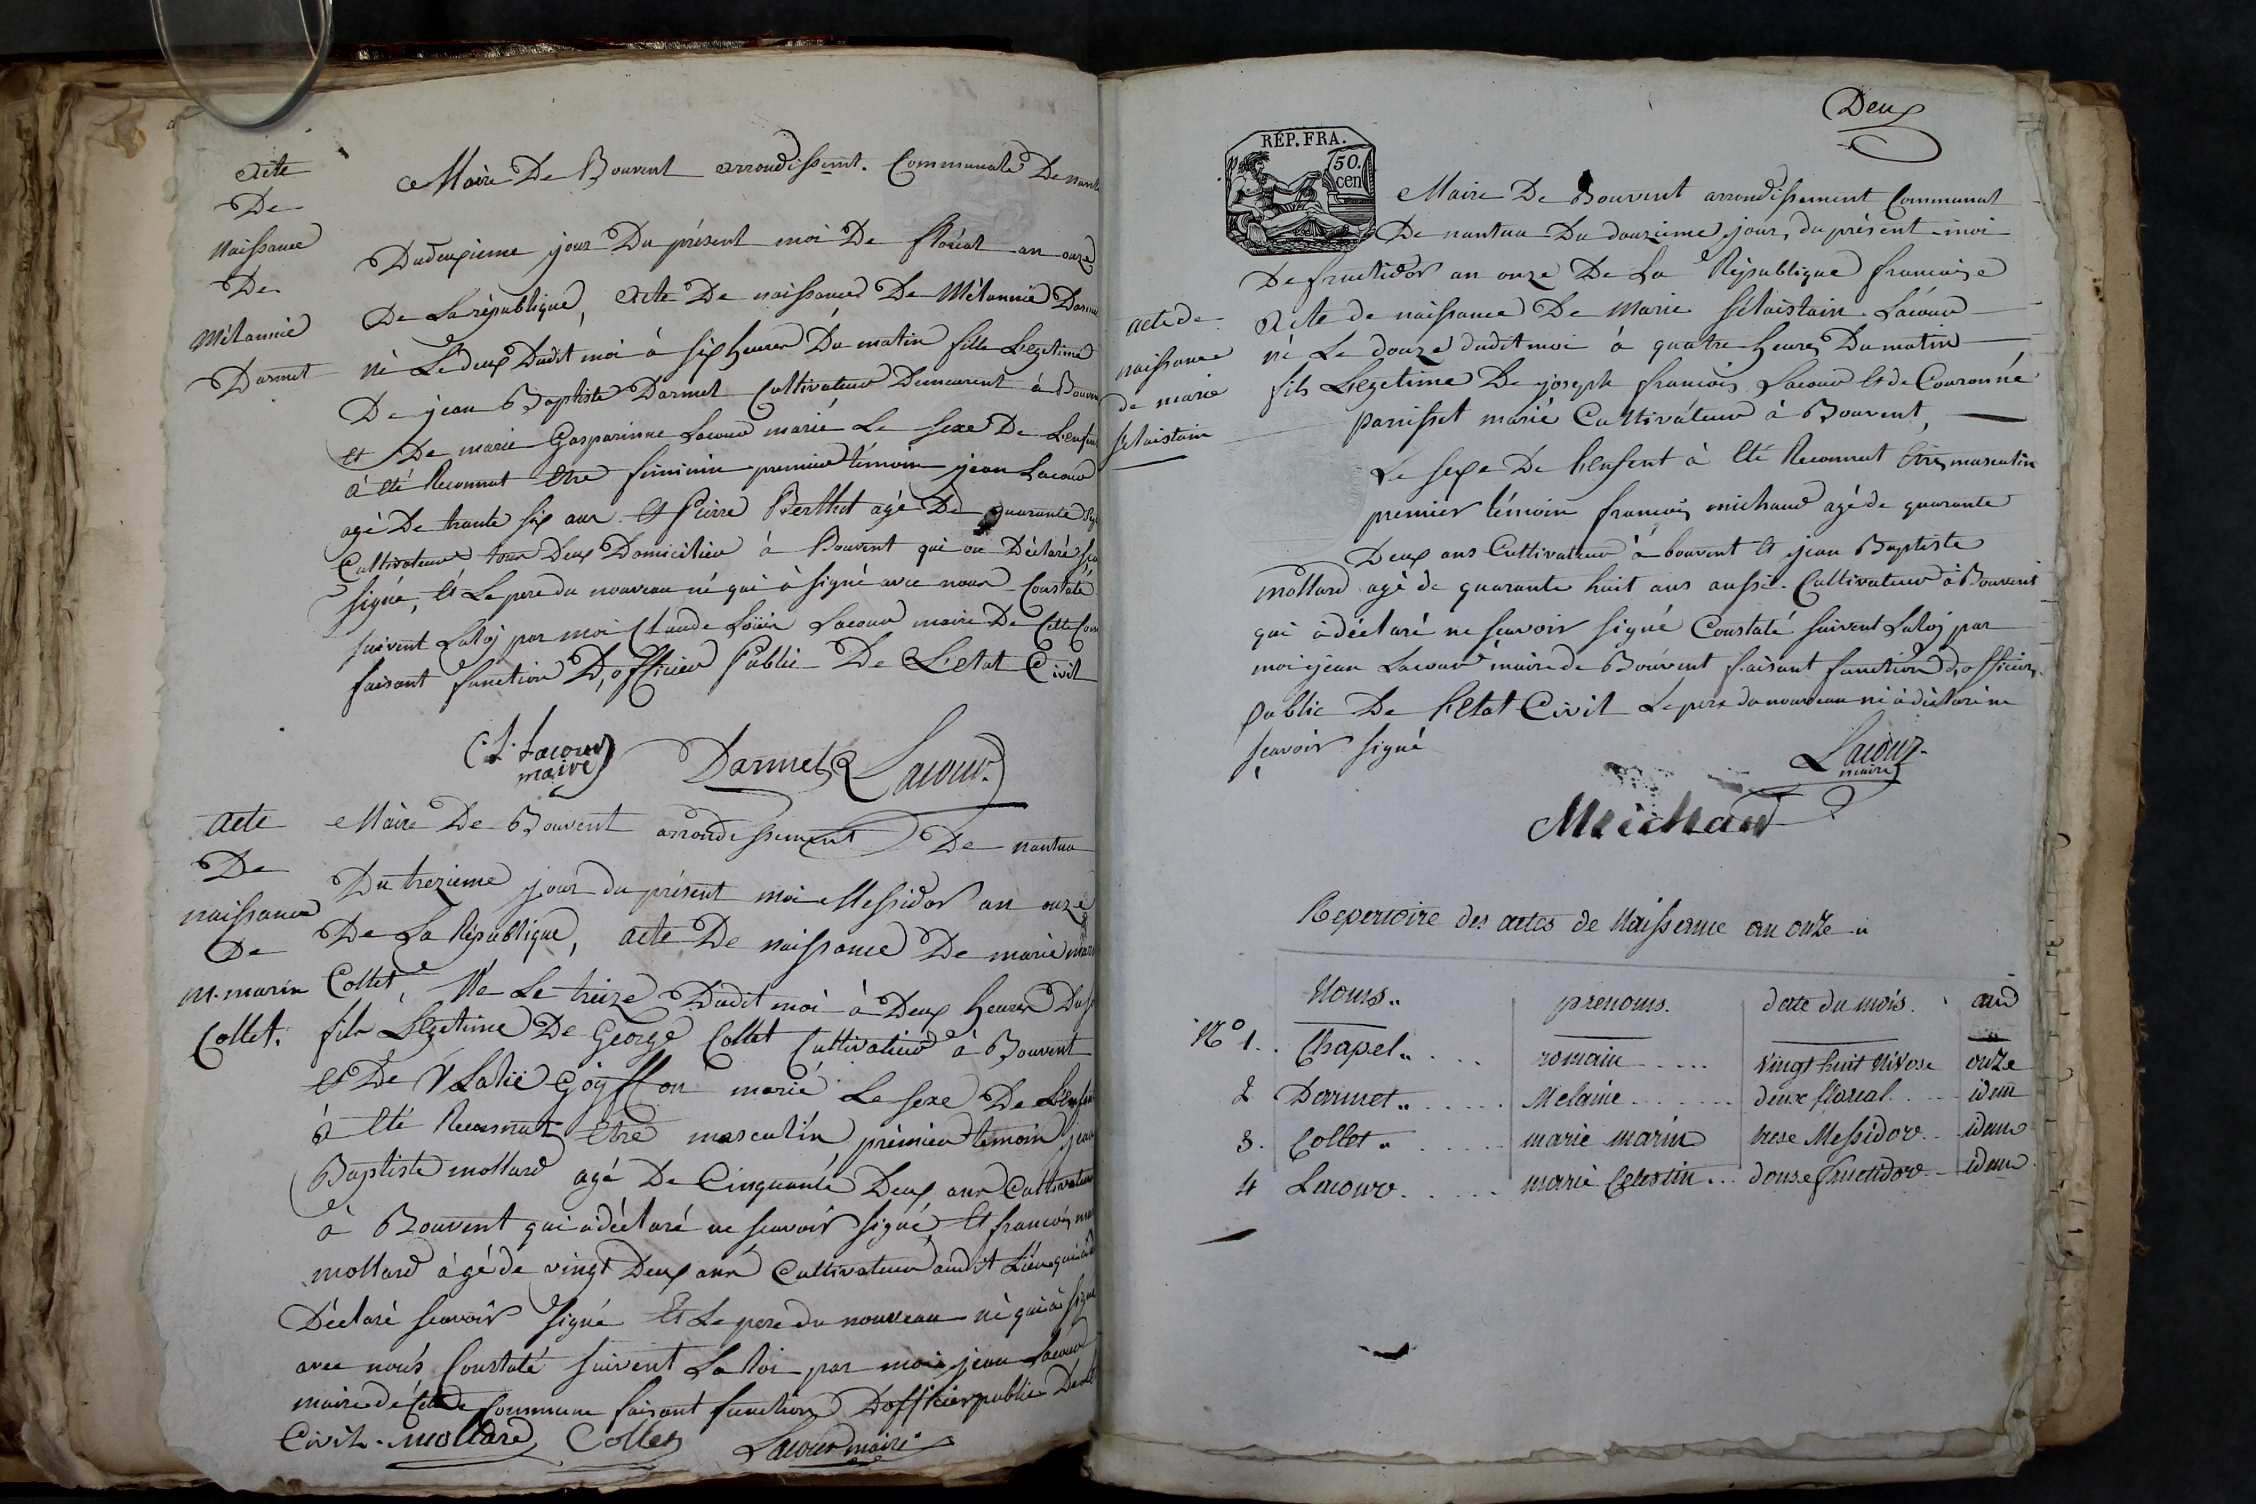 Acte
De
Naissance
De
Mélannie
Darmet
Maire De Bouvent arrondissemt. Communale De nant
Dudeuxieme jour Du présent moi De floréal an onze
De La république, Acte De naissance De Mélannie Darm
né Ledeux Dudit moi à six heures Du matin fille Legetime
De jean Baptiste Darmet Cultivateur Demeurent à Bouven
et De marie Gasparinne Lacour marié Le sexe De L'enfan
à été Reconnut être féminin premier témoin jean Lacour
agé De trante six ans et Pierre Berthet agé De quarante
Cultivateur, tous Deux Domicilier à Bouvent qui on Déclaré
signé, et Le pere du nouveau né qui à signé avec nous Constaté
suivent Laloj par moi Claude Loüis Lacour maire De Cette Com
faisant function D'officier Public De L'etat Civil
C. L. Lacour
maire
Darmet Lacour
Acte
De
naissance
De
m. marin
Collet.
Maire De Bouvent arrondissement De nantua
Du trezieme jour du présent moi Messidor an onze
De La République, acte De naissance De marie mari
Collet Né Le treize Dudit moi à Deux heures Du s
fils Legetime De George Collet Cultivateur à Bouvent
et De Goyffon marié Le sexe De L'enfan
à été Reconnut être masculin, prémier temoin jean
Baptiste mollard agé De Cinquante Deux ans Cultivateur
à Bouvent qui à déclaré ne scavoir signé, et françois
mollard àgé de vingt Deux ans Cultivateur audit Lieu qui à
Déclaré scavoir signé et Le pere du nouveau né qui à signé
avec nous Constaté suivent La loi par moi jean Lacour
maire de Cette Commune faisant function D'officier public De
Civil. Mollard Collet Lacour maire
Deux
RÉP. FRA.
50.
cen
Maire De Bouvent arrondissement Communal
De nantua Du douzieme jour, du présent moi
De fructidor an onze De La République françaize
acte de
naissance
de marie
selaistain
Acte de naissance De Marie Sélaistain Lacour
né Le douze dudit moi à quatre heures Du matin
fils Legetime De joseph françois Lacour et de Couronne
Panisset marié Cultivateur à Bouvent
Le sexe De l'ensent à été Reconnut être masculin
premier témoin françois michaud agé de quarante
Deux ans Cultivateur à bouvent et jean Baptiste
mollard agé de quarante huit ans aussi Cultivateur à Bouvent
qui à déclaré ne scavoir signé Constaté suivent Laloj par
moi jean Lacour maire de Bouvent faisant function d'officier
public De l'etat Civil Le pere du nouveau né à déclaré ne
scavoir signé
Lacour
maire
Meichaud
Repertoire des actes de Naissance an onze
Noms prenoms. date du mois. an
N° 1. Chapel romain vingt huit Nivose onze
2 Darmet Melanie deux floreal idem
3. Collet marie marin trese Messidor idem
4 Lacour marie Celestin douse fructidor idem